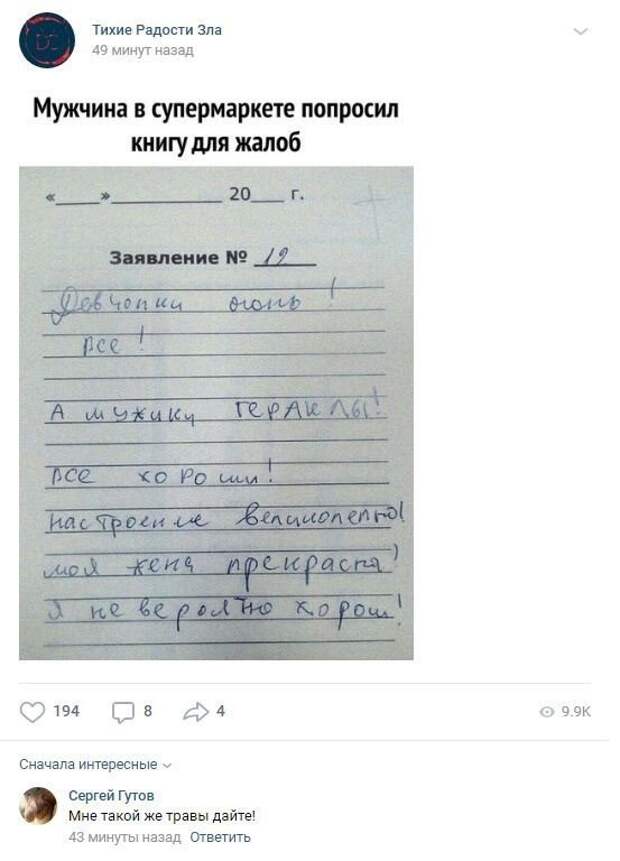 Тихие Радости Зла
49 минут назад
Мужчина в супермаркете попросил
книгу для жалоб
«___»__________ 20___ г.
Заявление № 19
Девчонки огонь!
все!
А мужики ГЕРАКЛЫ!
все хороши!
настроение великолепно!
моя жена прекрасна!
Я не вероятно хорош!
194
8
4
9.9K
Сначала интересные
Сергей Гутов
Мне такой же травы дайте!
43 минуты назад Ответить